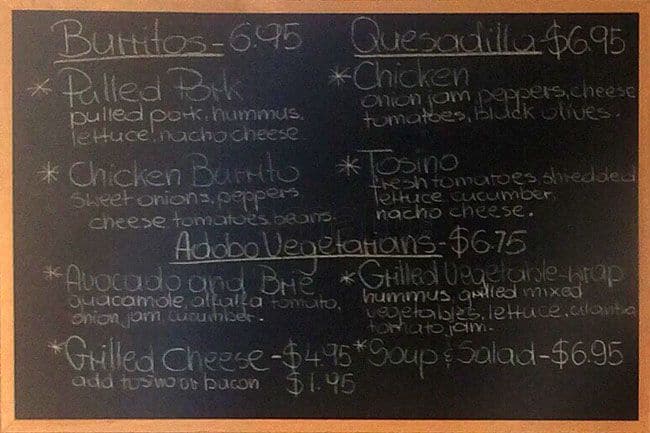 Burritos - 6.95
* Pulled Pork
pulled pork, hummus,
lettuce, nacho cheese
* Chicken Burrito
sweet onions, peppers
cheese, tomatoes, beans.
Quesadilla - $6.95
* Chicken
onion jam, peppers, cheese
tomatoes, black olives.
* Tosino
fresh tomatoes, shredded
lettuce, cucumber,
nacho cheese.
Adobo Vegetarians - $6.75
* Avocado and Brie
guacamole, alfalfa tomato,
onion jam cucumber.
* Grilled Vegetable-wrap
hummus, grilled mixed
vegetables, lettuce, cilantro
tomato jam.
* Grilled Cheese - $4.95
add tosino or bacon $1.95
* Soup & Salad - $6.95